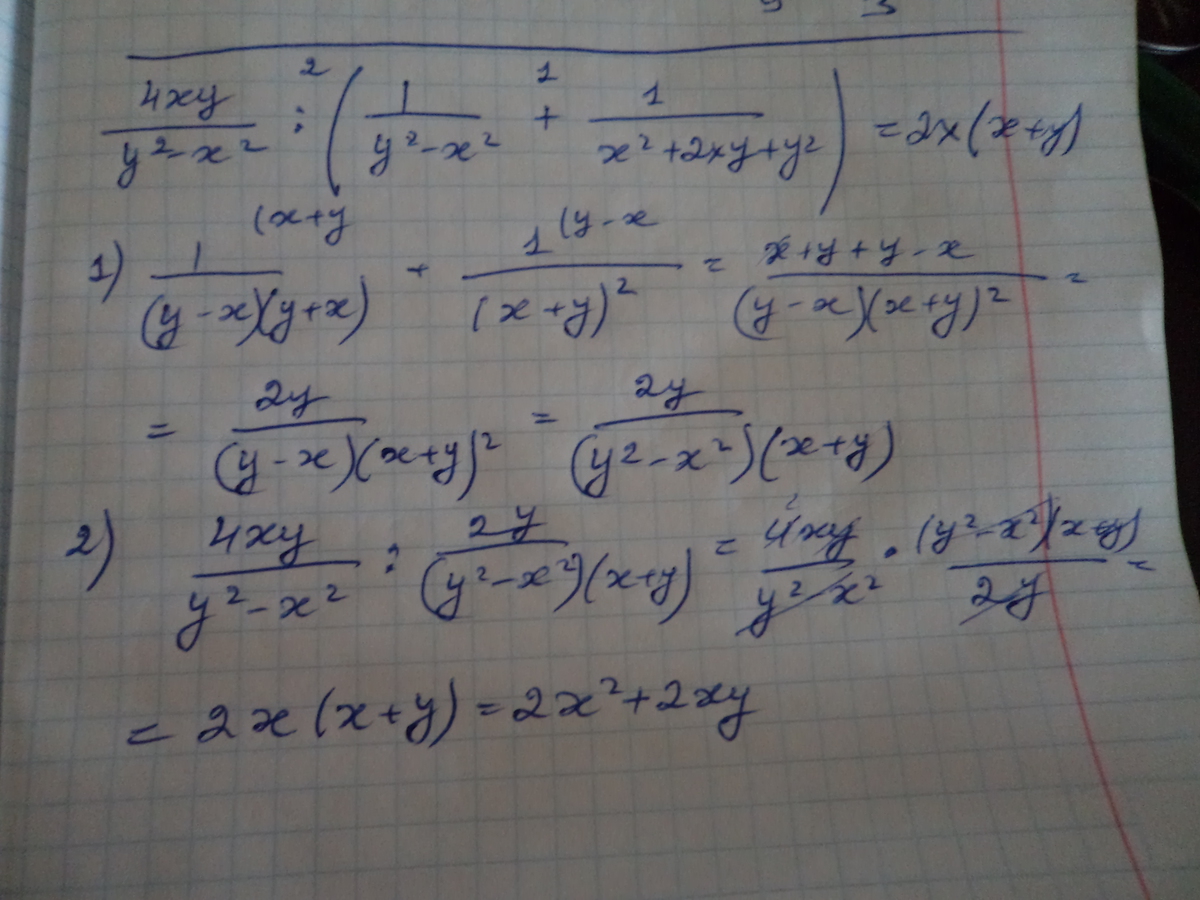 4xy / (y² - x²) :² ( 1 / (y² - x²) +¹ 1 / (x² + 2xy + y²) ) = 2x(x+y)
1) 1 (x+y / (y-x)(y+x) + 1 (y-x / (x+y)² = x+y+y-x / (y-x)(x+y)² =
= 2y / (y-x)(x+y)² = 2y / (y²-x²)(x+y)
2) 4xy / y²-x² : 2y / (y²-x²)(x+y) = 4xy / y²-x² · (y²-x²)(x+y) / 2y =
= 2x(x+y) = 2x²+2xy